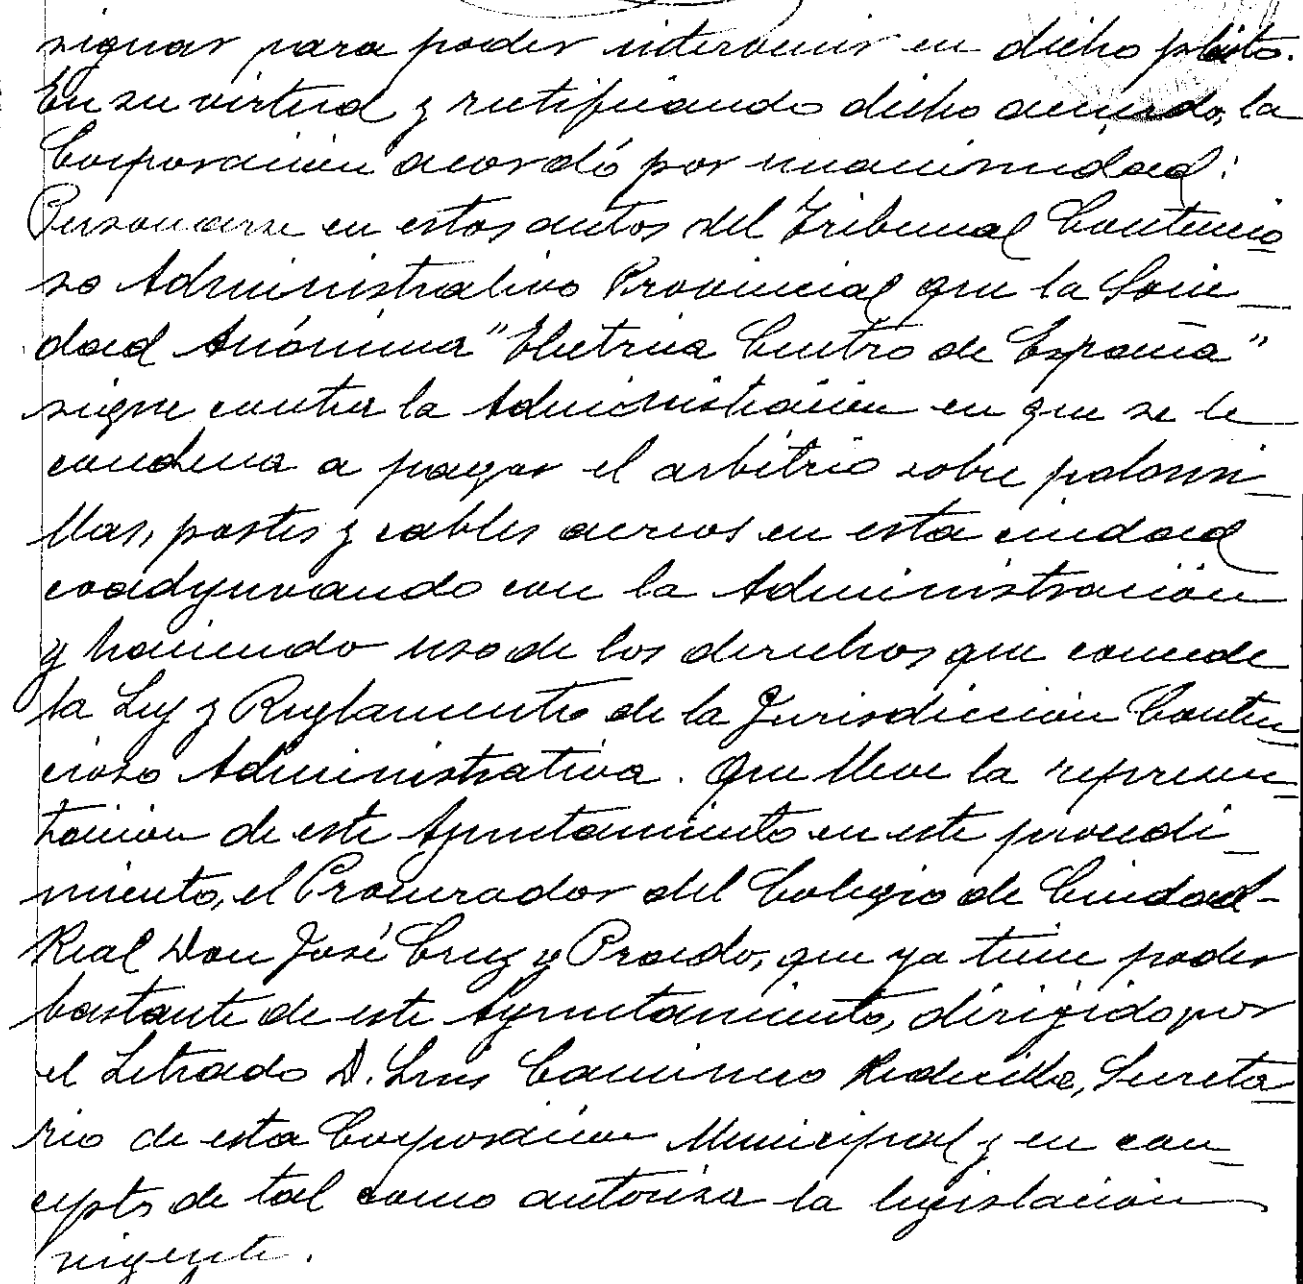 signar para poder intervenir en dicho pleito.
En su virtud y rectificando dicho acuerdo, la
Corporación acordó por unanimidad:
Personarse en estos autos del Tribunal Contencio
so Administrativo Provincial que la Socie_
dad Anónima "Electrica Centro de España"
sigue contra la Administración en que se le
condena a pagar el arbitrio sobre palomi_
llas, postes y cables aereos en esta ciudad
coadyuvando con la Administración
y haciendo uso de los derechos que concede
la Ley y Reglamento de la Jurisdiccion Conten_
cioso Administrativa. Que lleve la represen_
tacion de este Ayuntamiento en este procedi_
miento, el Procurador del Colegio de Ciudad-
Real Don José Cruz y Prado, que ya tiene poder
bastante de este Ayuntamiento, dirigido por
el Letrado D. Luis Caminero Redecilla, Secreta_
rio de esta Corporación Municipal y en con_
cepto de tal como autoriza la legislación
vigente.